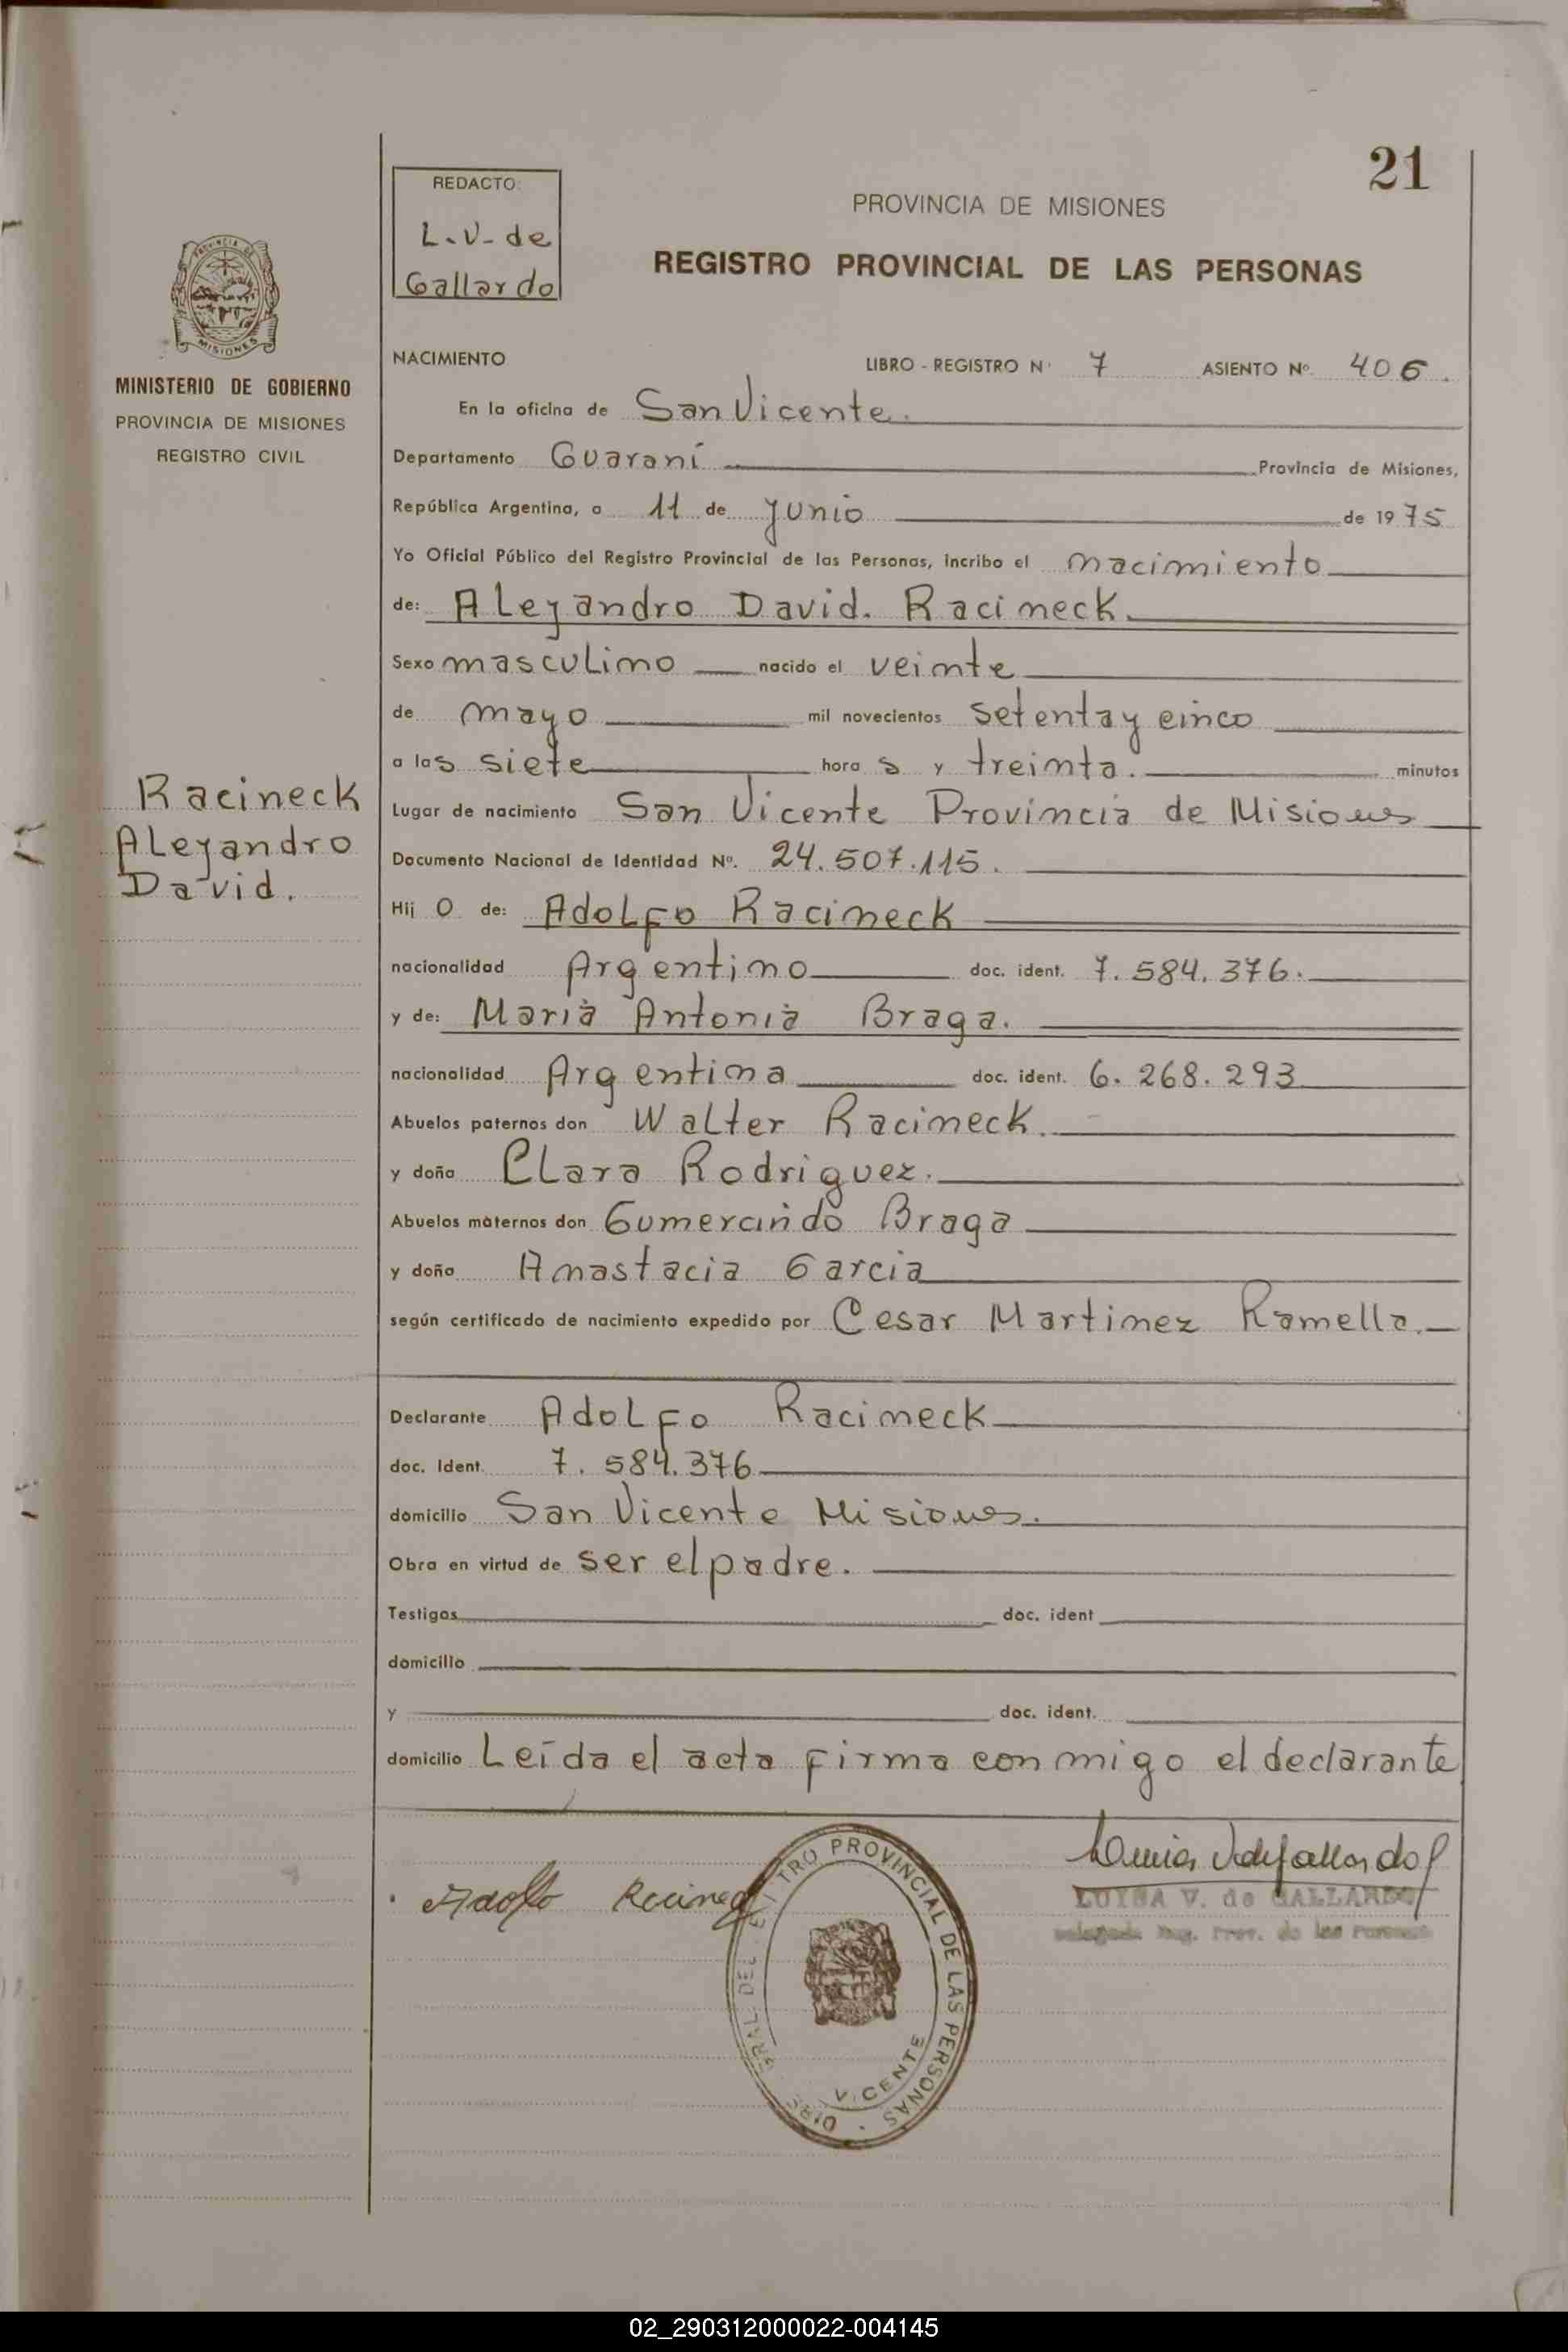 21
REDACTO:
L.V. de
Gallardo
PROVINCIA DE MISIONES
REGISTRO PROVINCIAL DE LAS PERSONAS
MISIONES
MINISTERIO DE GOBIERNO
PROVINCIA DE MISIONES
REGISTRO CIVIL
NACIMIENTO LIBRO - REGISTRO Nº 7 ASIENTO Nº 406.
En la oficina de San Vicente.
Departamento Guaraní Provincia de Misiones,
República Argentina, a 11 de junio de 1975
Yo Oficial Público del Registro Provincial de las Personas, incribo el nacimiento
de: Alejandro David. Racineck.
Sexo masculino nacido el veinte
de mayo mil novecientos setenta y cinco
a las siete horas y treinta. minutos
Racineck
Alejandro
David.
Lugar de nacimiento San Vicente Provincia de Misiones
Documento Nacional de Identidad Nº. 24.507.115.
Hijo de: Adolfo Racineck
nacionalidad Argentino doc. ident. 7.584.376.
y de: Maria Antonia Braga.
nacionalidad Argentina doc. ident. 6.268.293
Abuelos paternos don Walter Racineck.
y doña Clara Rodriguez.
Abuelos maternos don Gumercindo Braga
y doña Anastacia Garcia
según certificado de nacimiento expedido por Cesar Martinez Ramella.
Declarante Adolfo Racineck
doc. Ident. 7.584.376
domicilio San Vicente Misiones.
Obra en virtud de ser el padre.
Testigos doc. ident
domicilio
y doc. ident.
domicilio Leída el acta firma conmigo el declarante
Adolfo
LUISA V. de GALLARDO
PROVINCIAL DE LAS PERSONAS
V. CENTE
02_290312000022-004145